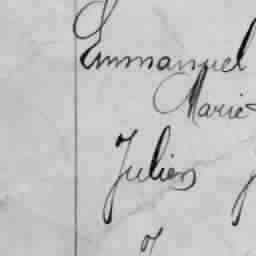 Emmanuel
Marie
Julien